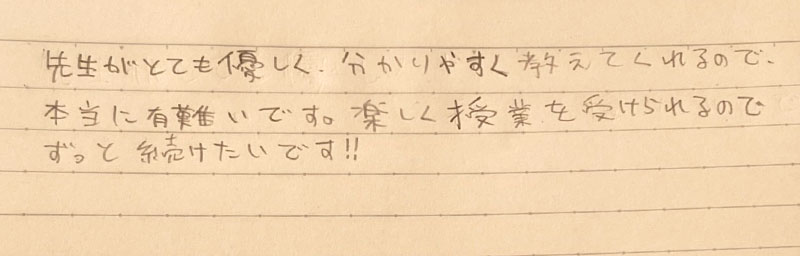 先生がとても優しく、分かりやすく教えてくれるので、
本当に有難いです。楽しく授業を受けられるので
ずっと続けたいです!!